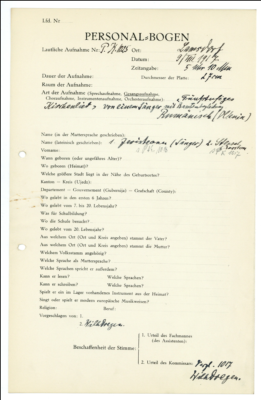 Lfd. Nr.
PERSONAL-BOGEN
Lautliche Aufnahme Nr. P.K. Ort: Lamsdorf
Datum:
Zeitangabe: 5 Uhr 10 Min
Dauer der Aufnahme: Durchmesser der Platte: 27cm
Raum der Aufnahme:
Art der Aufnahme (Sprechaufnahme, Gesangsaufnahme,
Choraufnahme, Instrumentenaufnahme, Orchesteraufnahme):
Kirchenlied, von einem Sänger
Name (in der Muttersprache geschrieben):
Name (lateinisch geschrieben): (Sänger)
Vorname:
Wann geboren (oder ungefähres Alter)?
Wo geboren (Heimat)?
Welche größere Stadt liegt in der Nähe des Geburtsortes?
Kanton — Kreis (Ujezd):
Department — Gouvernement (Gubernija) — Grafschaft (County):
Wo gelebt in den ersten 6 Jahren?
Wo gelebt vom 7. bis 20. Lebensjahr?
Was für Schulbildung?
Wo die Schule besucht?
Wo gelebt vom 20. Lebensjahr?
Aus welchem Ort (Ort und Kreis angeben) stammt der Vater?
Aus welchem Ort (Ort und Kreis angeben) stammt die Mutter?
Welchem Volksstamm angehörig?
Welche Sprache als Muttersprache?
Welche Sprachen spricht er außerdem?
Kann er lesen? Welche Sprachen?
Kann er schreiben? Welche Sprachen?
Spielt er ein im Lager vorhandenes Instrument aus der Heimat?
Singt oder spielt er modern europäische Musikweisen?
Religion: Beruf:
Vorgeschlagen von: 1.
2. W. Doegen.
Beschaffenheit der Stimme:
1. Urteil des Fachmannes
(des Assistenten)
2. Urteil des Kommissars:
W. Doegen.